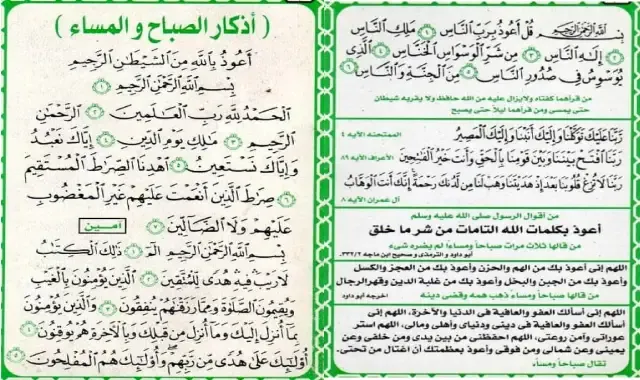 ( أذكار الصباح و المساء )
أَعُوذُ بِاللَّهِ مِنَ الشَّيْطَٰنِ الرَّجِيمِ
بِسْمِ اللَّهِ الرَّحْمَٰنِ الرَّحِيمِ ١
الْحَمْدُ لِلَّهِ رَبِّ الْعَٰلَمِينَ ٢ الرَّحْمَٰنِ
الرَّحِيمِ ٣ مَٰلِكِ يَوْمِ الدِّينِ ٤ إِيَّاكَ نَعْبُدُ
وَإِيَّاكَ نَسْتَعِينُ ٥ اهْدِنَا الصِّرَٰطَ الْمُسْتَقِيمَ
٦ صِرَٰطَ الَّذِينَ أَنْعَمْتَ عَلَيْهِمْ غَيْرِ الْمَغْضُوبِ
عَلَيْهِمْ وَلَا الضَّالِّينَ ٧ آمين
بِسْمِ اللَّهِ الرَّحْمَٰنِ الرَّحِيمِ الٓمٓ ١ ذَٰلِكَ الْكِتَٰبُ
لَا رَيْبَ فِيهِ هُدًى لِلْمُتَّقِينَ ٢ الَّذِينَ يُؤْمِنُونَ بِالْغَيْبِ
وَيُقِيمُونَ الصَّلَوٰةَ وَمِمَّا رَزَقْنَٰهُمْ يُنْفِقُونَ ٣ وَالَّذِينَ يُؤْمِنُونَ
بِمَا أُنْزِلَ إِلَيْكَ وَمَا أُنْزِلَ مِنْ قَبْلِكَ وَبِالْآخِرَةِ هُمْ يُوقِنُونَ ٤
أُولَٰئِكَ عَلَىٰ هُدًى مِنْ رَبِّهِمْ وَأُولَٰئِكَ هُمُ الْمُفْلِحُونَ ٥
بِسْمِ اللَّهِ الرَّحْمَٰنِ الرَّحِيمِ قُلْ أَعُوذُ بِرَبِّ النَّاسِ ١ مَلِكِ النَّاسِ
٢ إِلَٰهِ النَّاسِ ٣ مِنْ شَرِّ الْوَسْوَاسِ الْخَنَّاسِ ٤ الَّذِي
يُوَسْوِسُ فِي صُدُورِ النَّاسِ ٥ مِنَ الْجِنَّةِ وَالنَّاسِ ٦
من قرأهما كفتاه ولايزال عليه من الله حافظ ولا يقربه شيطان
حتى يمسى ومن قرأهما ليلاً حتى يصبح
رَبَّنَا عَلَيْكَ تَوَكَّلْنَا وَإِلَيْكَ أَنَبْنَا وَإِلَيْكَ الْمَصِيرُ الممتحنه الآيه ٤
رَبَّنَا افْتَحْ بَيْنَنَا وَبَيْنَ قَوْمِنَا بِالْحَقِّ وَأَنْتَ خَيْرُ الْفَٰتِحِينَ الأعراف الآيه ٨٩
رَبَّنَا لَا تُزِغْ قُلُوبَنَا بَعْدَ إِذْ هَدَيْتَنَا وَهَبْ لَنَا مِنْ لَدُنْكَ رَحْمَةً إِنَّكَ أَنْتَ الْوَهَّابُ
آل عمران الآيه ٨
من أقوال الرسول صلى الله عليه وسلم
أعوذ بكلمات الله التامات من شر ما خلق
من قالها ثلاث مرات صباحاً ومساءاً لم يضره شىء
أبو داود و الترمذى و صحيح ابن ماجه ٣٣٢/٢
اللهم إنى أعوذ بك من الهم والحزن وأعوذ بك من العجز والكسل
وأعوذ بك من الجبن والبخل وأعوذ بك من غلبة الدين وقهرالرجال
من قالها صباحاً ومساء ذهب همه وقضى دينه اخرجه أبو داود
اللهم إنى أسألك العفو والعافية فى الدنيا والآخرة، اللهم إنى
أسألك العفو والعافية فى دينى ودنياى وأهلى ومالى، اللهم استر
عوراتى وآمن روعتى، اللهم احفظنى من بين يدى ومن خلفى وعن
يمينى وعن شمالى ومن فوقى وأعوذ بعظمتك أن اغتال من تحتى.
تقال صباحاً ومساءً.